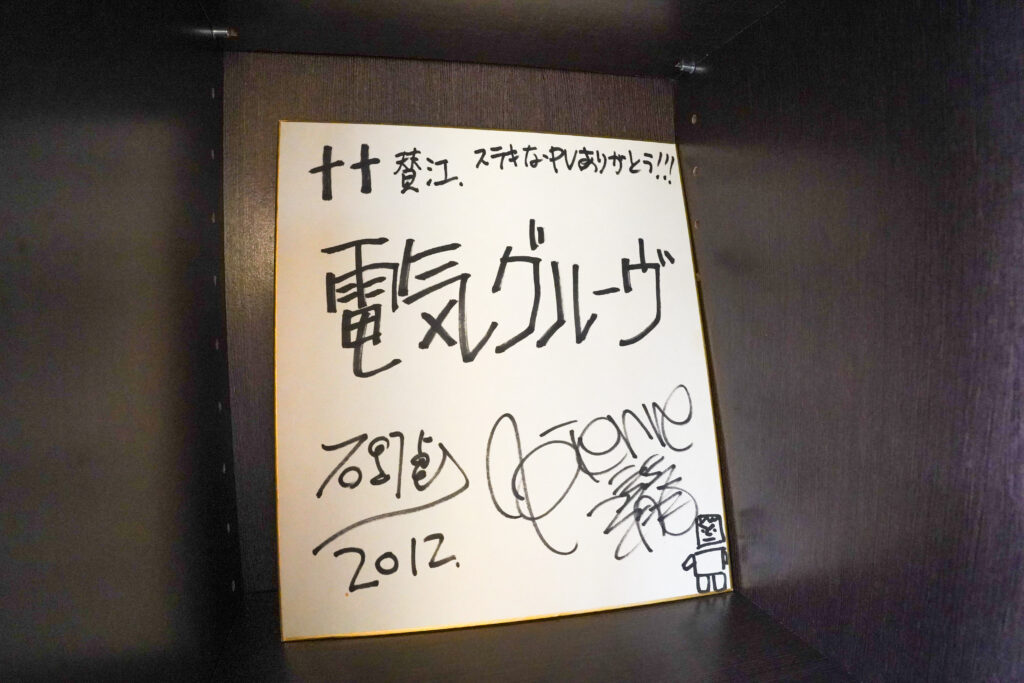 十十 賛江. ステキなPVありがとう!!!
電気グルーヴ
石野卓
2012.
Pierre
瀧